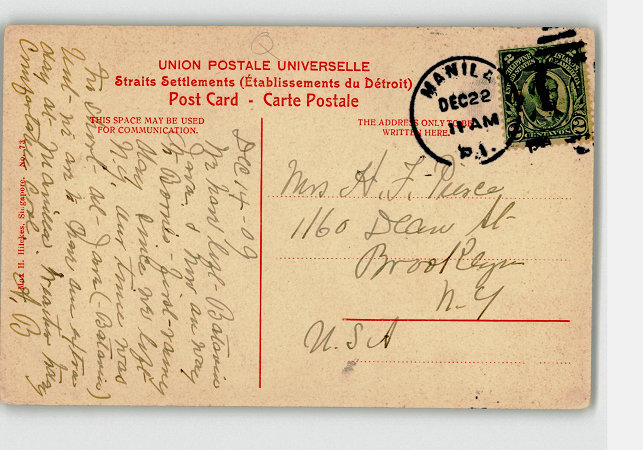 UNION POSTALE UNIVERSELLE
Straits Settlements (Établissements du Détroit)
Post Card - Carte Postale
THIS SPACE MAY BE USED
FOR COMMUNICATION.
THE ADDRESS ONLY TO BE
WRITTEN HERE.
MANILA
DEC 22
11 AM
P.I.
2 2
CENTAVOS
Mrs H. F. Pierce
1160 Dean St
Brooklyn
N-Y
USA
Dec 14-09
We have left Batavia
Java, & now on way
to Borneo - first rainy
day since we left
N.Y. Our time was
too short - at Java (Batavia)
Until - we are to have an extra
day at Manila. Weather today
Comfortably Cool. H. B
Max H. Hilckes, Singapore. No. 73